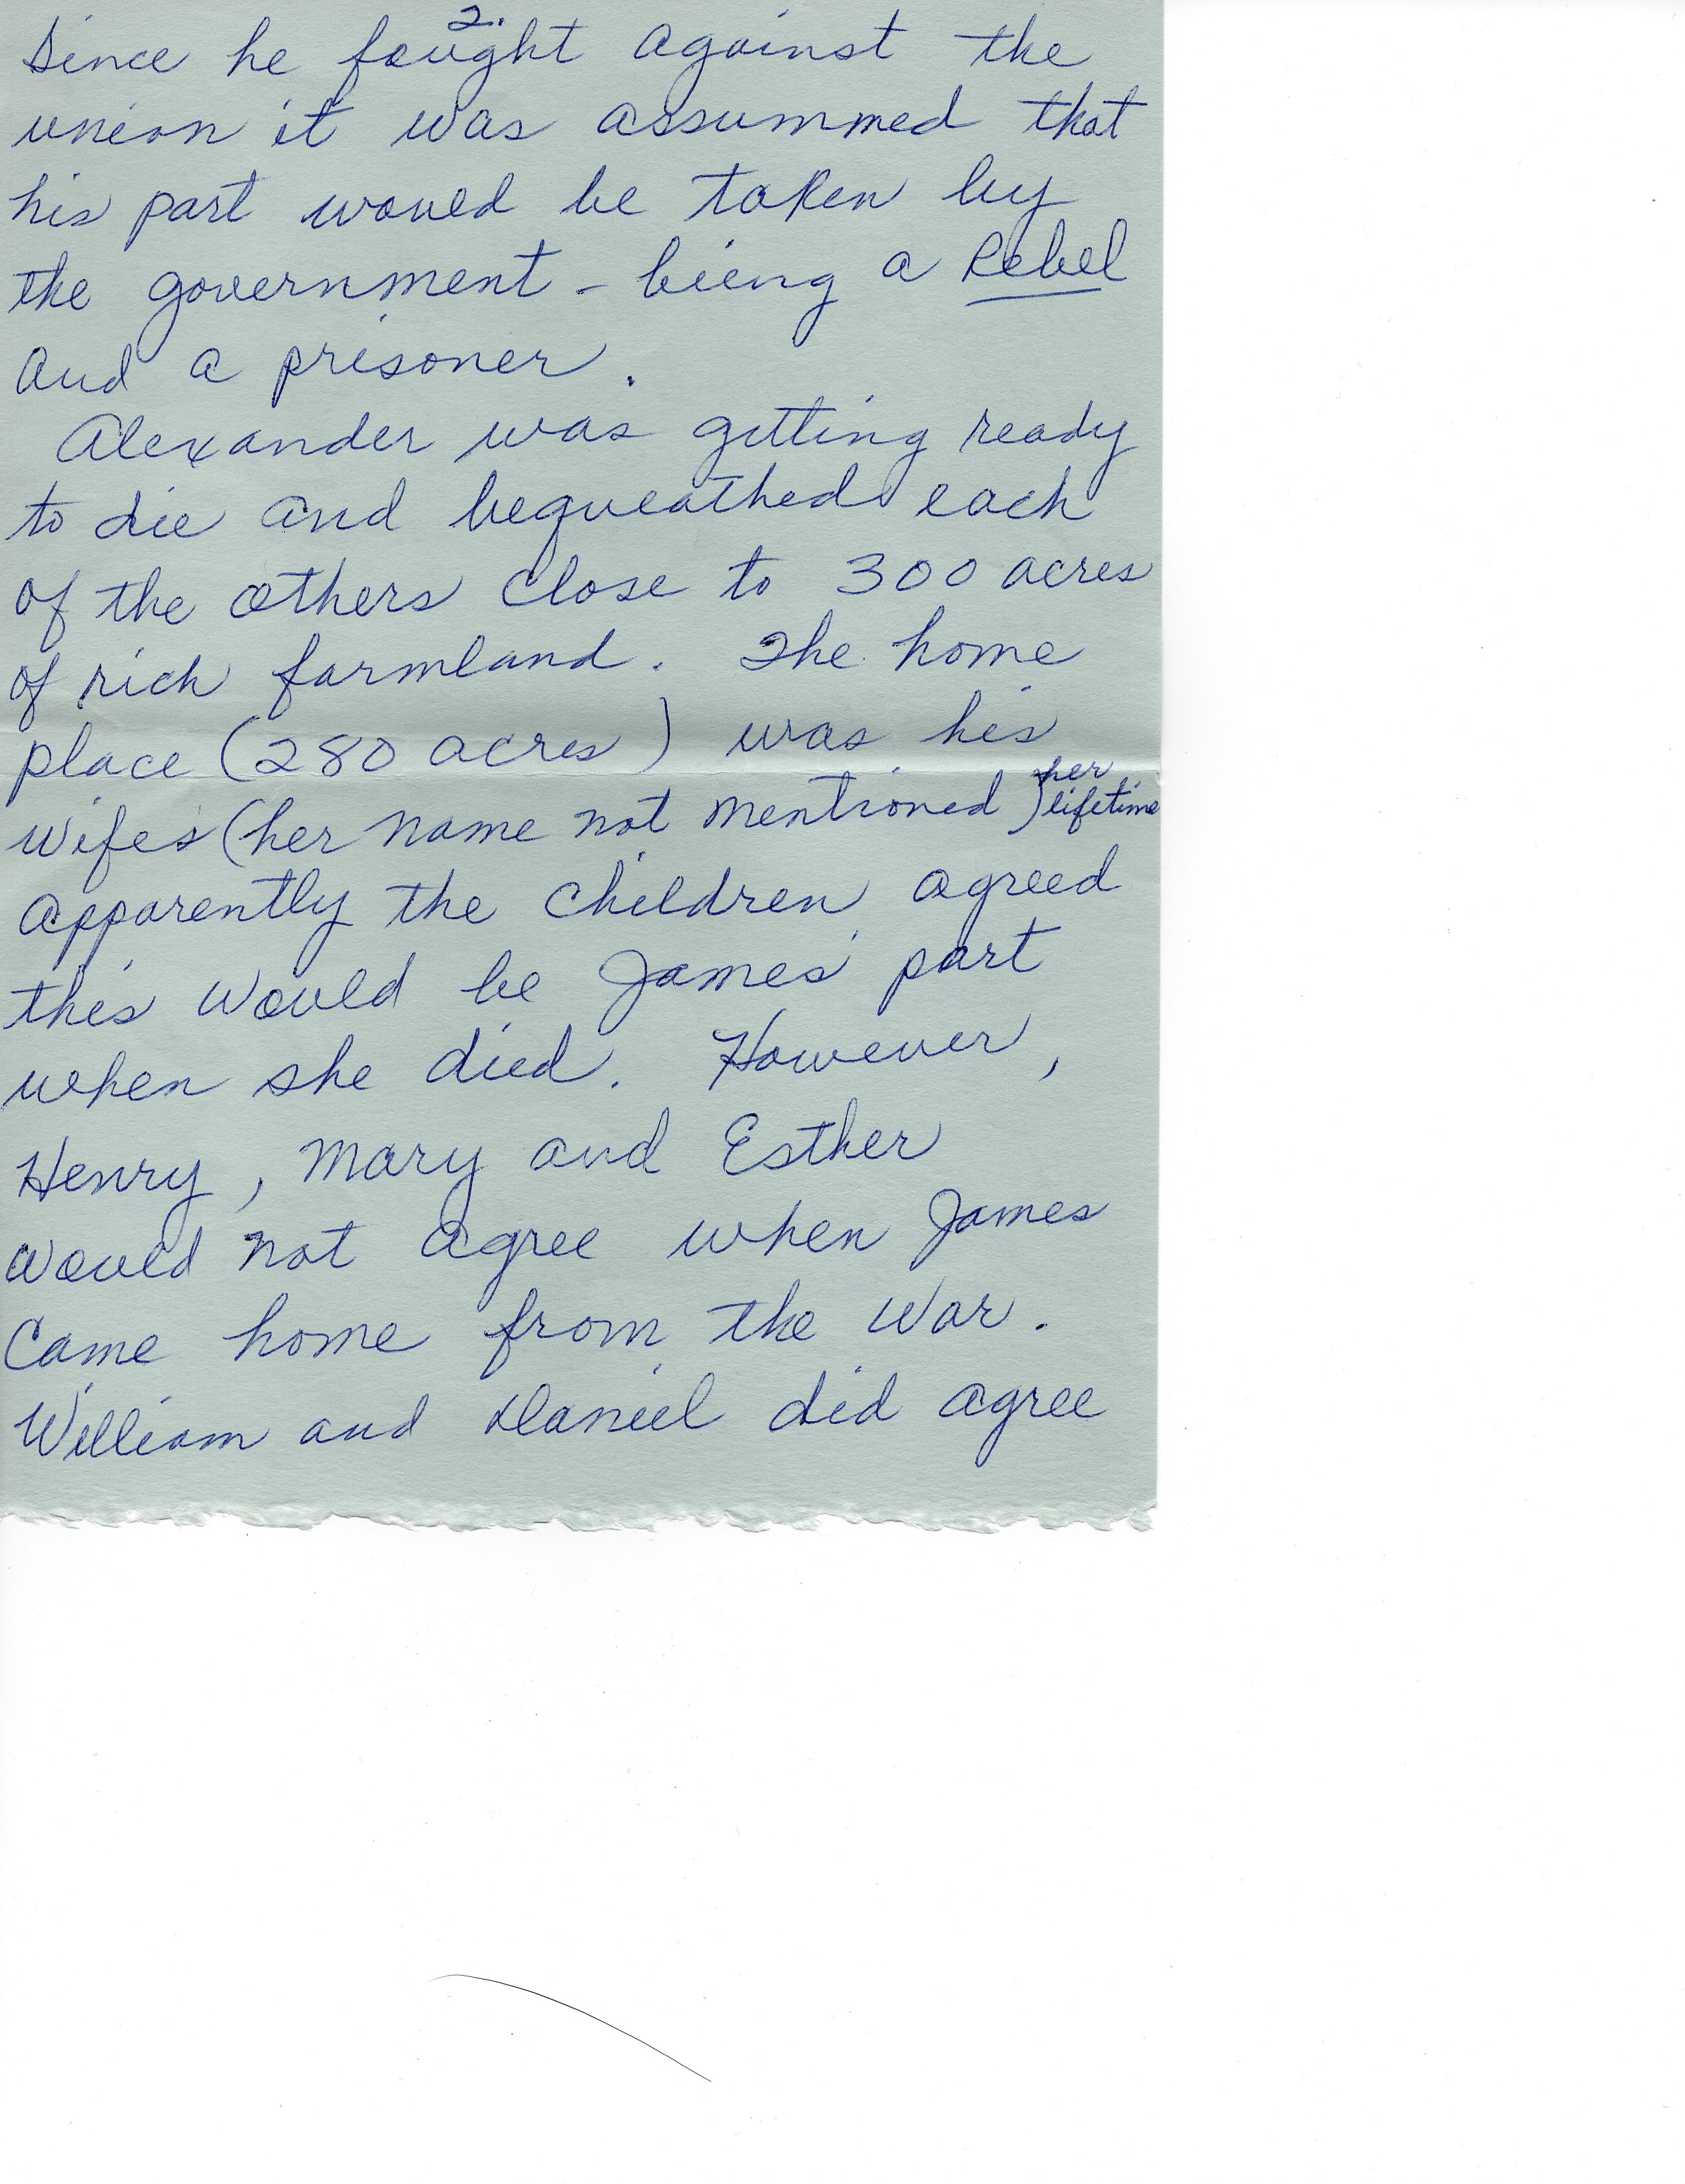 2.
Since he fought against the
union it was assummed that
his part would be taken by
the government - being a Rebel
and a prisoner.
Alexander was getting ready
to die and bequeathed each
of the others close to 300 acres
of rich farmland. The home
place (280 acres) was his
wifes (her name not mentioned) her lifetime
Apparently the children agreed
this would be James' part
when she died. However,
Henry, Mary and Esther
would not agree when James
Came home from the War.
William and Daniel did agree